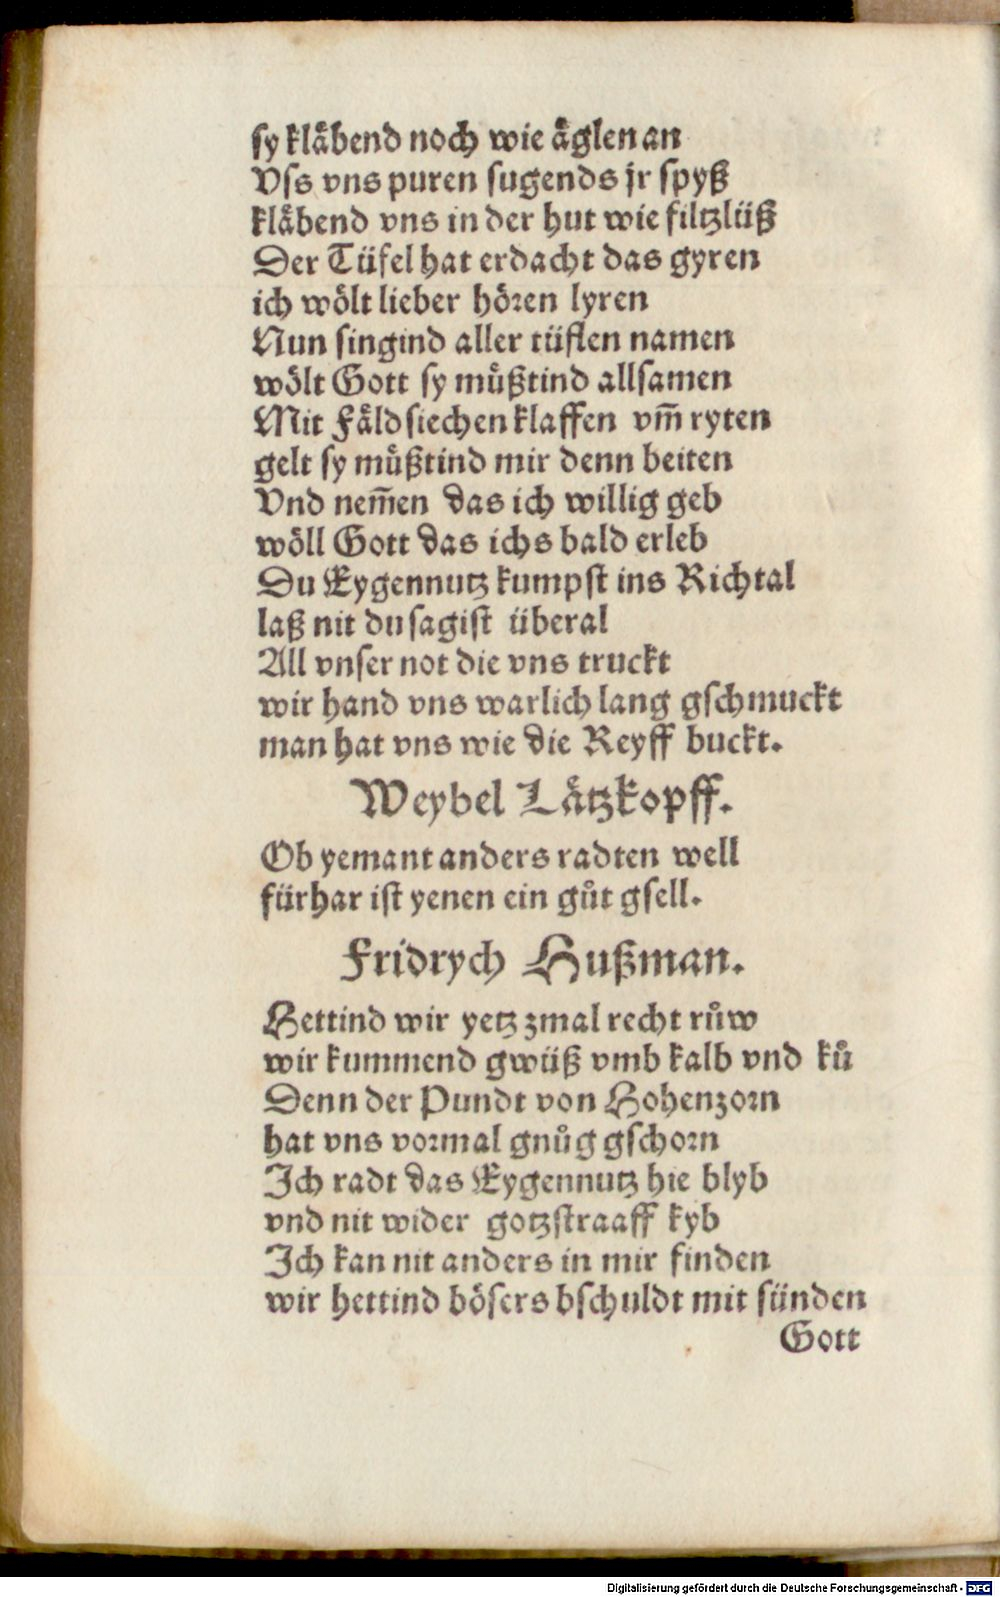 sy klåbend noch wie åglen an
Vss vns puren sugends jr spyß
klåbend vns in der hut wie filtzlüß
Der Tüfel hat erdacht das gyren
ich wölt lieber hören lyren
Nun singind aller tüflen namen
wölt Gott sy můßtind allsamen
Mit Fåldsiechen klaffen vm̃ ryten
gelt sy můßtind mir denn beiten
Vnd nem̃en das ich willig geb
wöll Gott das ichs bald erleb
Du Eygennutz kumpst ins Richtal
laß nit du sagist überal
All vnser not die vns truckt
wir hand vns warlich lang gschmuckt
man hat vns wie die Reyff buckt.
Weybel Låtzkopff.
Ob yemant anders radten well
fürhar ist yenen ein gůt gsell.
Fridrych Hußman.
Hettind wir yetz zmal recht růw
wir kummend gwüß vmb kalb vnd ků
Denn der Pundt von Hohenzorn
hat vns vormal gnůg gschorn
Ich radt das Eygennutz hie blyb
vnd nit wider gotzstraaff kyb
Ich kan nit anders in mir finden
wir hettind bösers bschuldt mit sünden
Gott
Digitalisierung gefördert durch die Deutsche Forschungsgemeinschaft - DFG